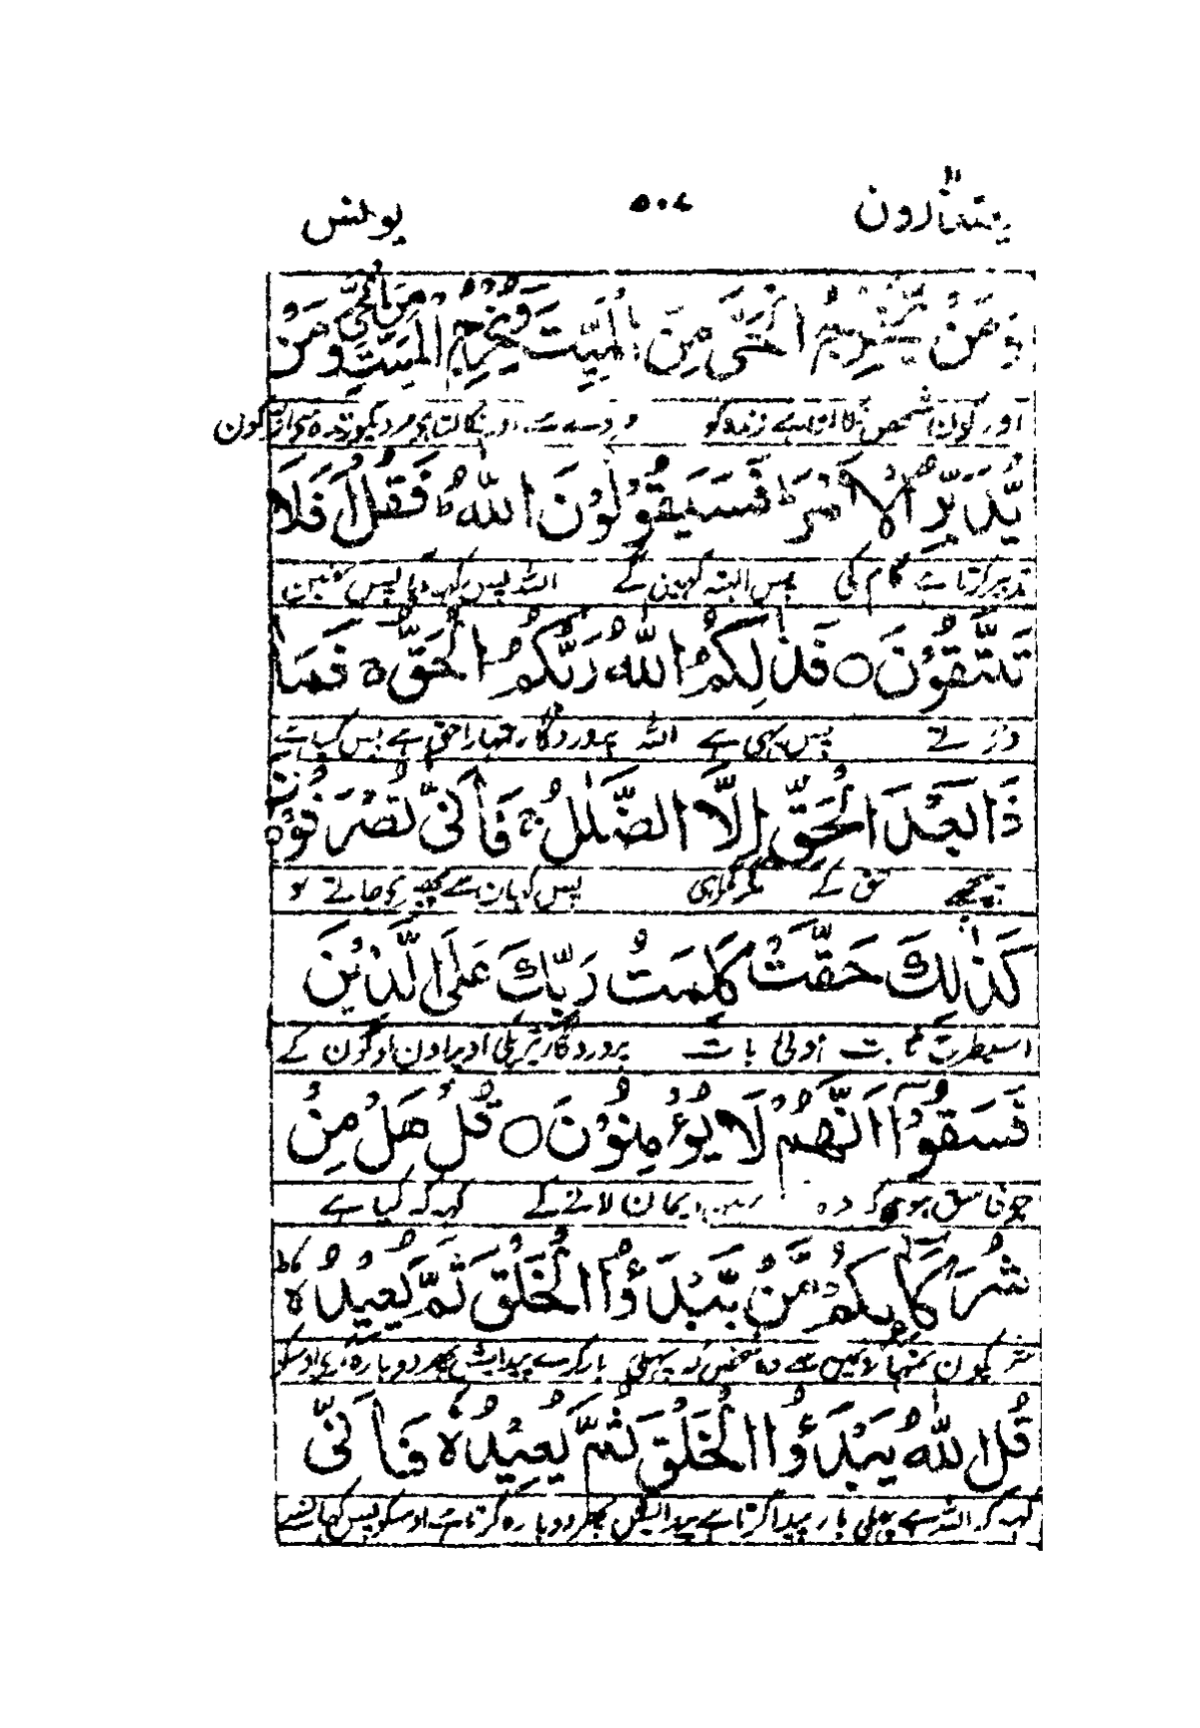 یعتذرون ۱۱ ۵۰۷ یونس
وَمَنْ يُّخْرِجُ الْحَىَّ مِنَ الْمَيِّتِ وَيُخْرِجُ الْمَيِّتَ مِنَ الْحَىِّ وَمَنْ
اور کون شخص نکالتا ہے زندہ کو مردے سے اور نکالتا ہے مردیکو زندہ سے اور کون
يُّدَبِّرُ الْاَمْرَ ؕ فَسَيَقُوْلُوْنَ اللّٰهُ ؕ فَقُلْ اَفَلَا
تدبیر کرتا ہے کام کی پس البتہ کہین گے اللہ پس کہہ کیا پس نہین
تَتَّقُوْنَ ○ فَذٰلِكُمُ اللّٰهُ رَبُّكُمُ الْحَقُّ ۚ فَمَا
ڈرتے پس یہی ہے اللہ پروردگار تمہارا حق ہے پس کیا ہے
ذَا بَعْدَ الْحَقِّ اِلَّا الضَّلٰلُ ۚ فَاَنّٰى تُصْرَفُوْنَ ○
پیچھے حق کے مگر گمراہی پس کہان سے پھیرے جاتے ہو
كَذٰلِكَ حَقَّتْ كَلِمَتُ رَبِّكَ عَلَى الَّذِيْنَ
اسیطرح ثابت ہوئی بات پروردگار تیرے کی اوپر اون لوگون کے
فَسَقُوْۤا اَنَّهُمْ لَا يُؤْمِنُوْنَ ○ قُلْ هَلْ مِنْ
جو فاسق ہوے کہ وہ نہین ایمان لانے کے کہہ کہ کیا ہے
شُرَكَآىِٕكُمْ مَّنْ يَّبْدَؤُا الْخَلْقَ ثُمَّ يُعِيْدُهٗ ؕ
شریکون تمہارے مین سے وہ شخص کہ پہلی بار کرے پیدایش پھر دوبارہ کرے اوسکو
قُلِ اللّٰهُ يَبْدَؤُا الْخَلْقَ ثُمَّ يُعِيْدُهٗ فَاَنّٰى
کہہ کہ اللہ ہے پہلی بار پیدا کرتا ہے پیدایش پھر دوبارہ کرتا ہے اوسکو پس کہان سے